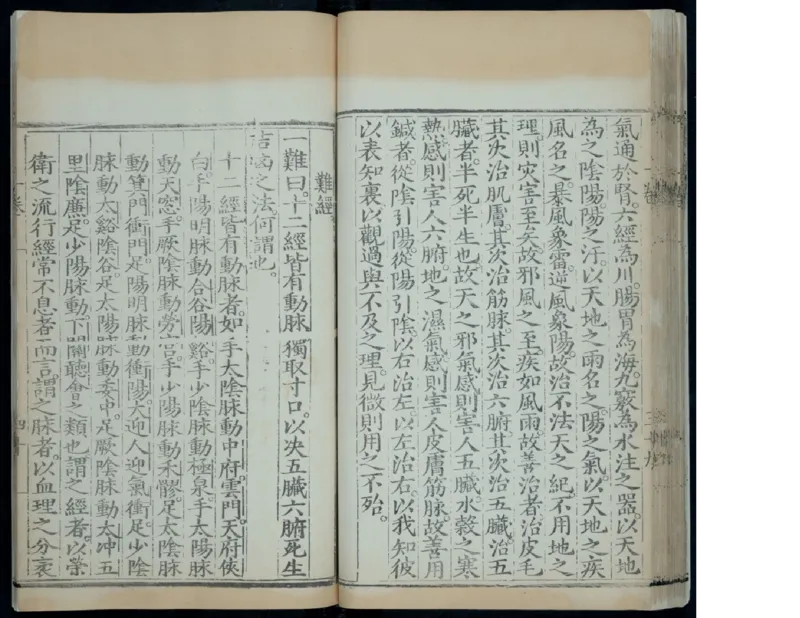 氣通於腎。六經為川。腸胃為海。九竅為水注之器。以天地
為之陰陽。陽之汗。以天地之雨名之。陽之氣。以天地之疾
風名之。暴風象雷。逆風象陽。故治不法天之紀。不用地之
理。則灾害至矣。故邪風之至。疾如風雨。故善治者治皮毛
其次治肌膚。其次治筋脉。其次治六腑。其次治五臟。治五
臟者。半死半生也。故天之邪氣。感則害人五臟。水穀之寒
熱。感則害人六腑。地之濕氣。感則害人皮膚筋脉。故善用
鍼者。從陰引陽。從陽引陰。以右治左。以左治右。以我知彼
以表知裏。以觀過與不及之理。見微則用之不殆。
難經
一難曰。十二經皆有動脉 獨取寸口。以决五臟六腑死生
吉凶之法。何謂也。
十二經皆有動脉者。如手太陰脉動中府。雲門。天府。俠
白。手陽明脉動合谷陽谿。手少陰脉動極泉。手太陽脉
動天窓。手厥陰脉動勞宮。手少陽脉動禾髎。足太陰脉
動箕門衝門。足陽明脉動衝陽。大迎人迎氣衝。足少陰
脉動太谿陰谷。足太陽脉動委中。足厥陰脉動太冲五
里陰㢘。足少陽脉動下關聽會之類也。謂之經者。以榮
衛之流行經常不息者而言。謂之脉者。以血理之分衺
一卷
四